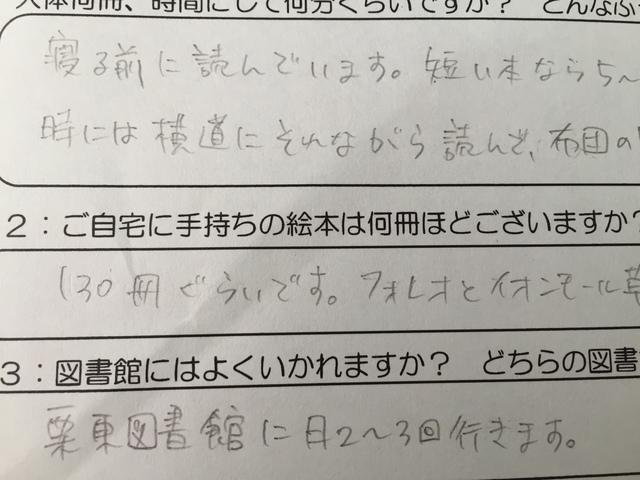 大体何冊、時間にして何分ぐらいですか？ どんなふ
寝る前に読んでいます。短い本なら5〜
時には横道にそれながら読んで、布団の
2：ご自宅に手持ちの絵本は何冊ほどございますか？
130冊ぐらいです。フォレオとイオンモール草
3：図書館にはよくいかれますか？ どちらの図書
栗東図書館に月2〜3回行きます。